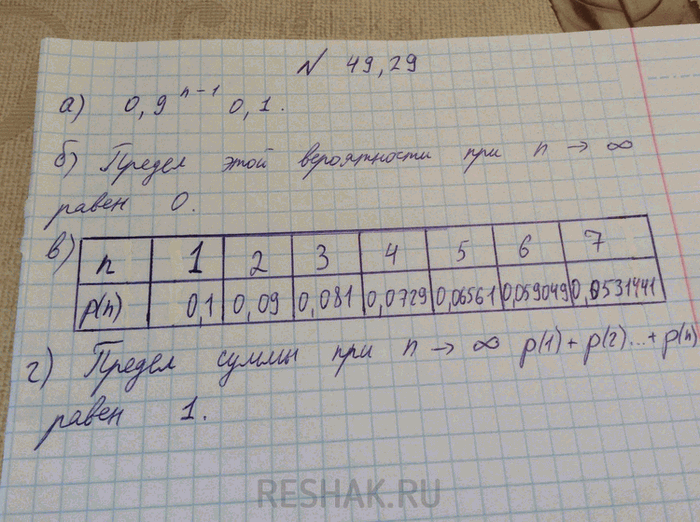 N 49,29
а) 0,9^{n-1} 0,1.
б) Предел этой вероятности при n → ∞
равен 0.
в) n 1 2 3 4 5 6 7
p(n) 0,1 0,09 0,081 0,0729 0,06561 0,059049 0,0531441
г) Предел суммы при n → ∞ p(1) + p(2)...+ p(n)
равен 1.
RESHAK.RU